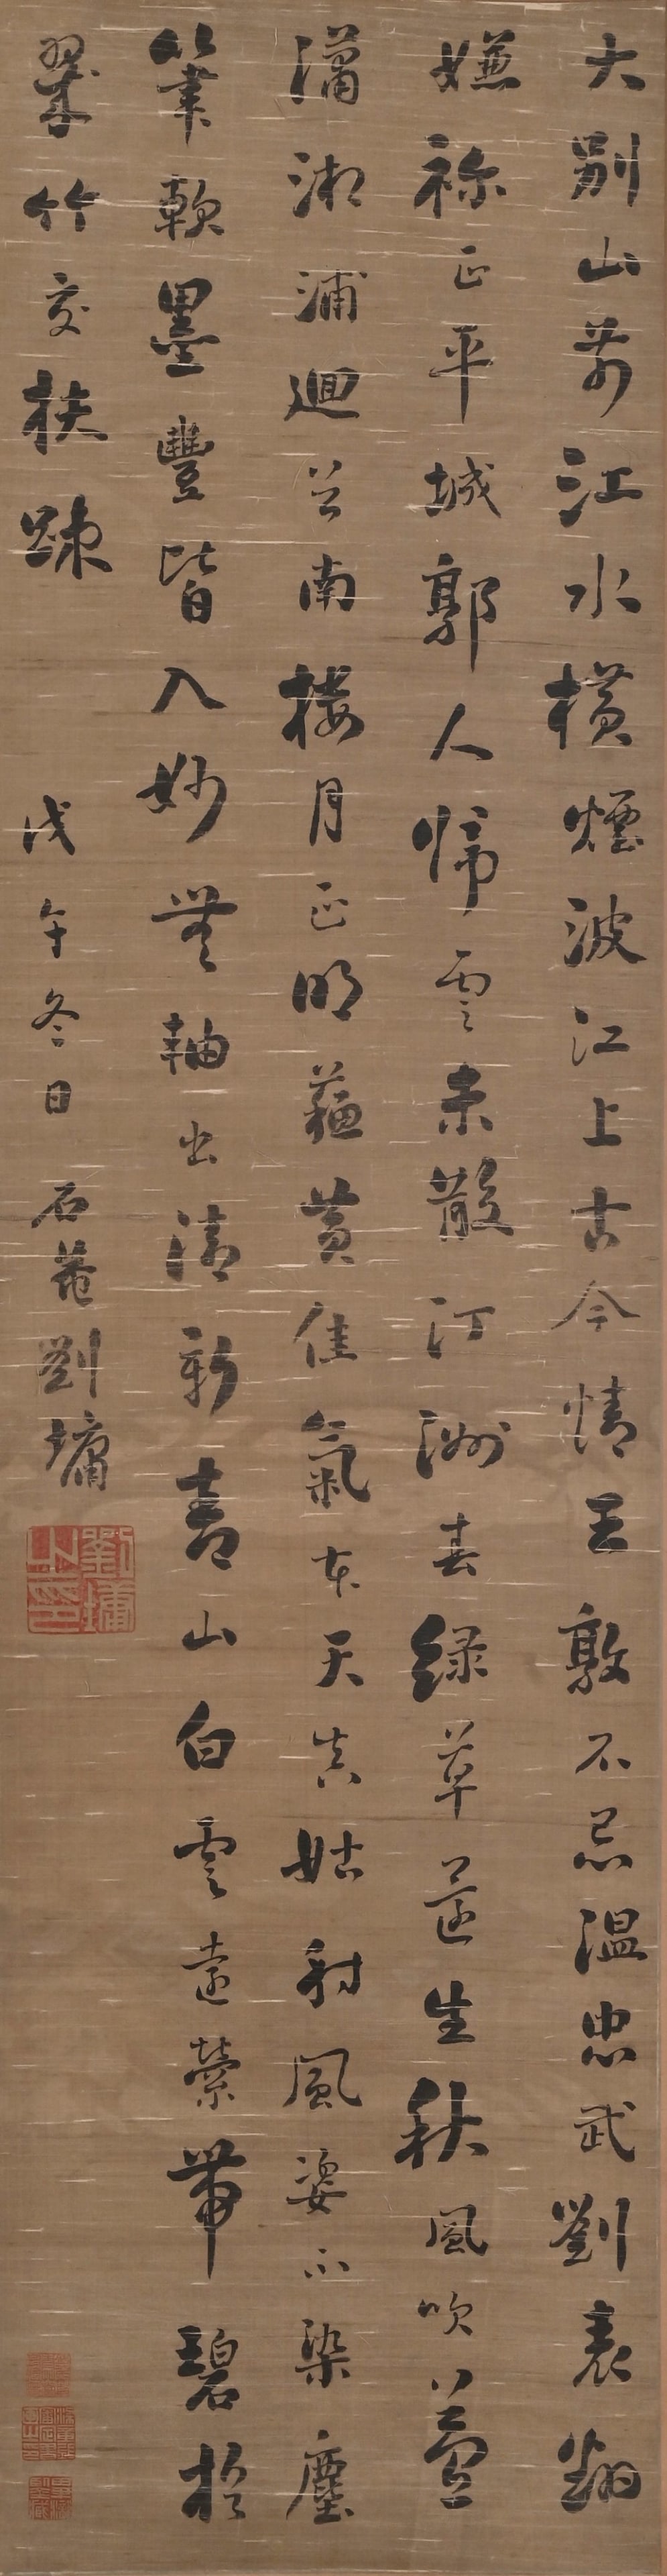 大別山前江水橫煙波江上古今情王敦不忌溫忠武劉表翻
嫌禰正平城郭人歸雲未散汀洲春綠草還生秋風吹
瀟湘浦迴首南樓月正明蘊黃佳氣本天真姑射風姿不染塵
筆軟墨豐皆入妙無軸出清新青山白雲遠縈帶碧松
翠竹交扶疎
戊午冬日 石菴劉墉
劉墉之印